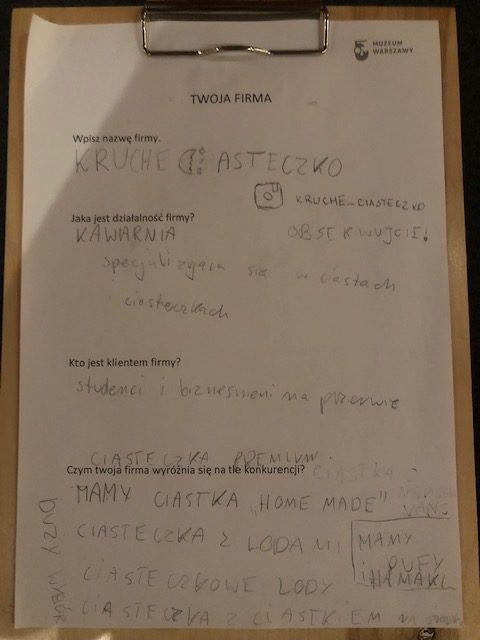 MUZEUM
WARSZAWY
TWOJA FIRMA
Wpisz nazwę firmy.
KRUCHE CIASTECZKO
KRUCHE_CIASTECZKO
Jaka jest działalność firmy?
KAWIARNIA
OBSERWUJCIE!
specjalizująca się w ciastach
i ciasteczkach
Kto jest klientem firmy?
studenci i biznesmeni na przerwie
CIASTECZKA PREMIUM
Czym twoja firma wyróżnia się na tle konkurencji?
CIASTKA
MAMY CIASTKA „HOME MADE"
CIASTECZKA Z LODAMI
MAMY
PUFY
I HAMAKI
CIASTECZKOWE LODY
CIASTECZKA Z CIASTKIEM
DUŻY WYBÓR